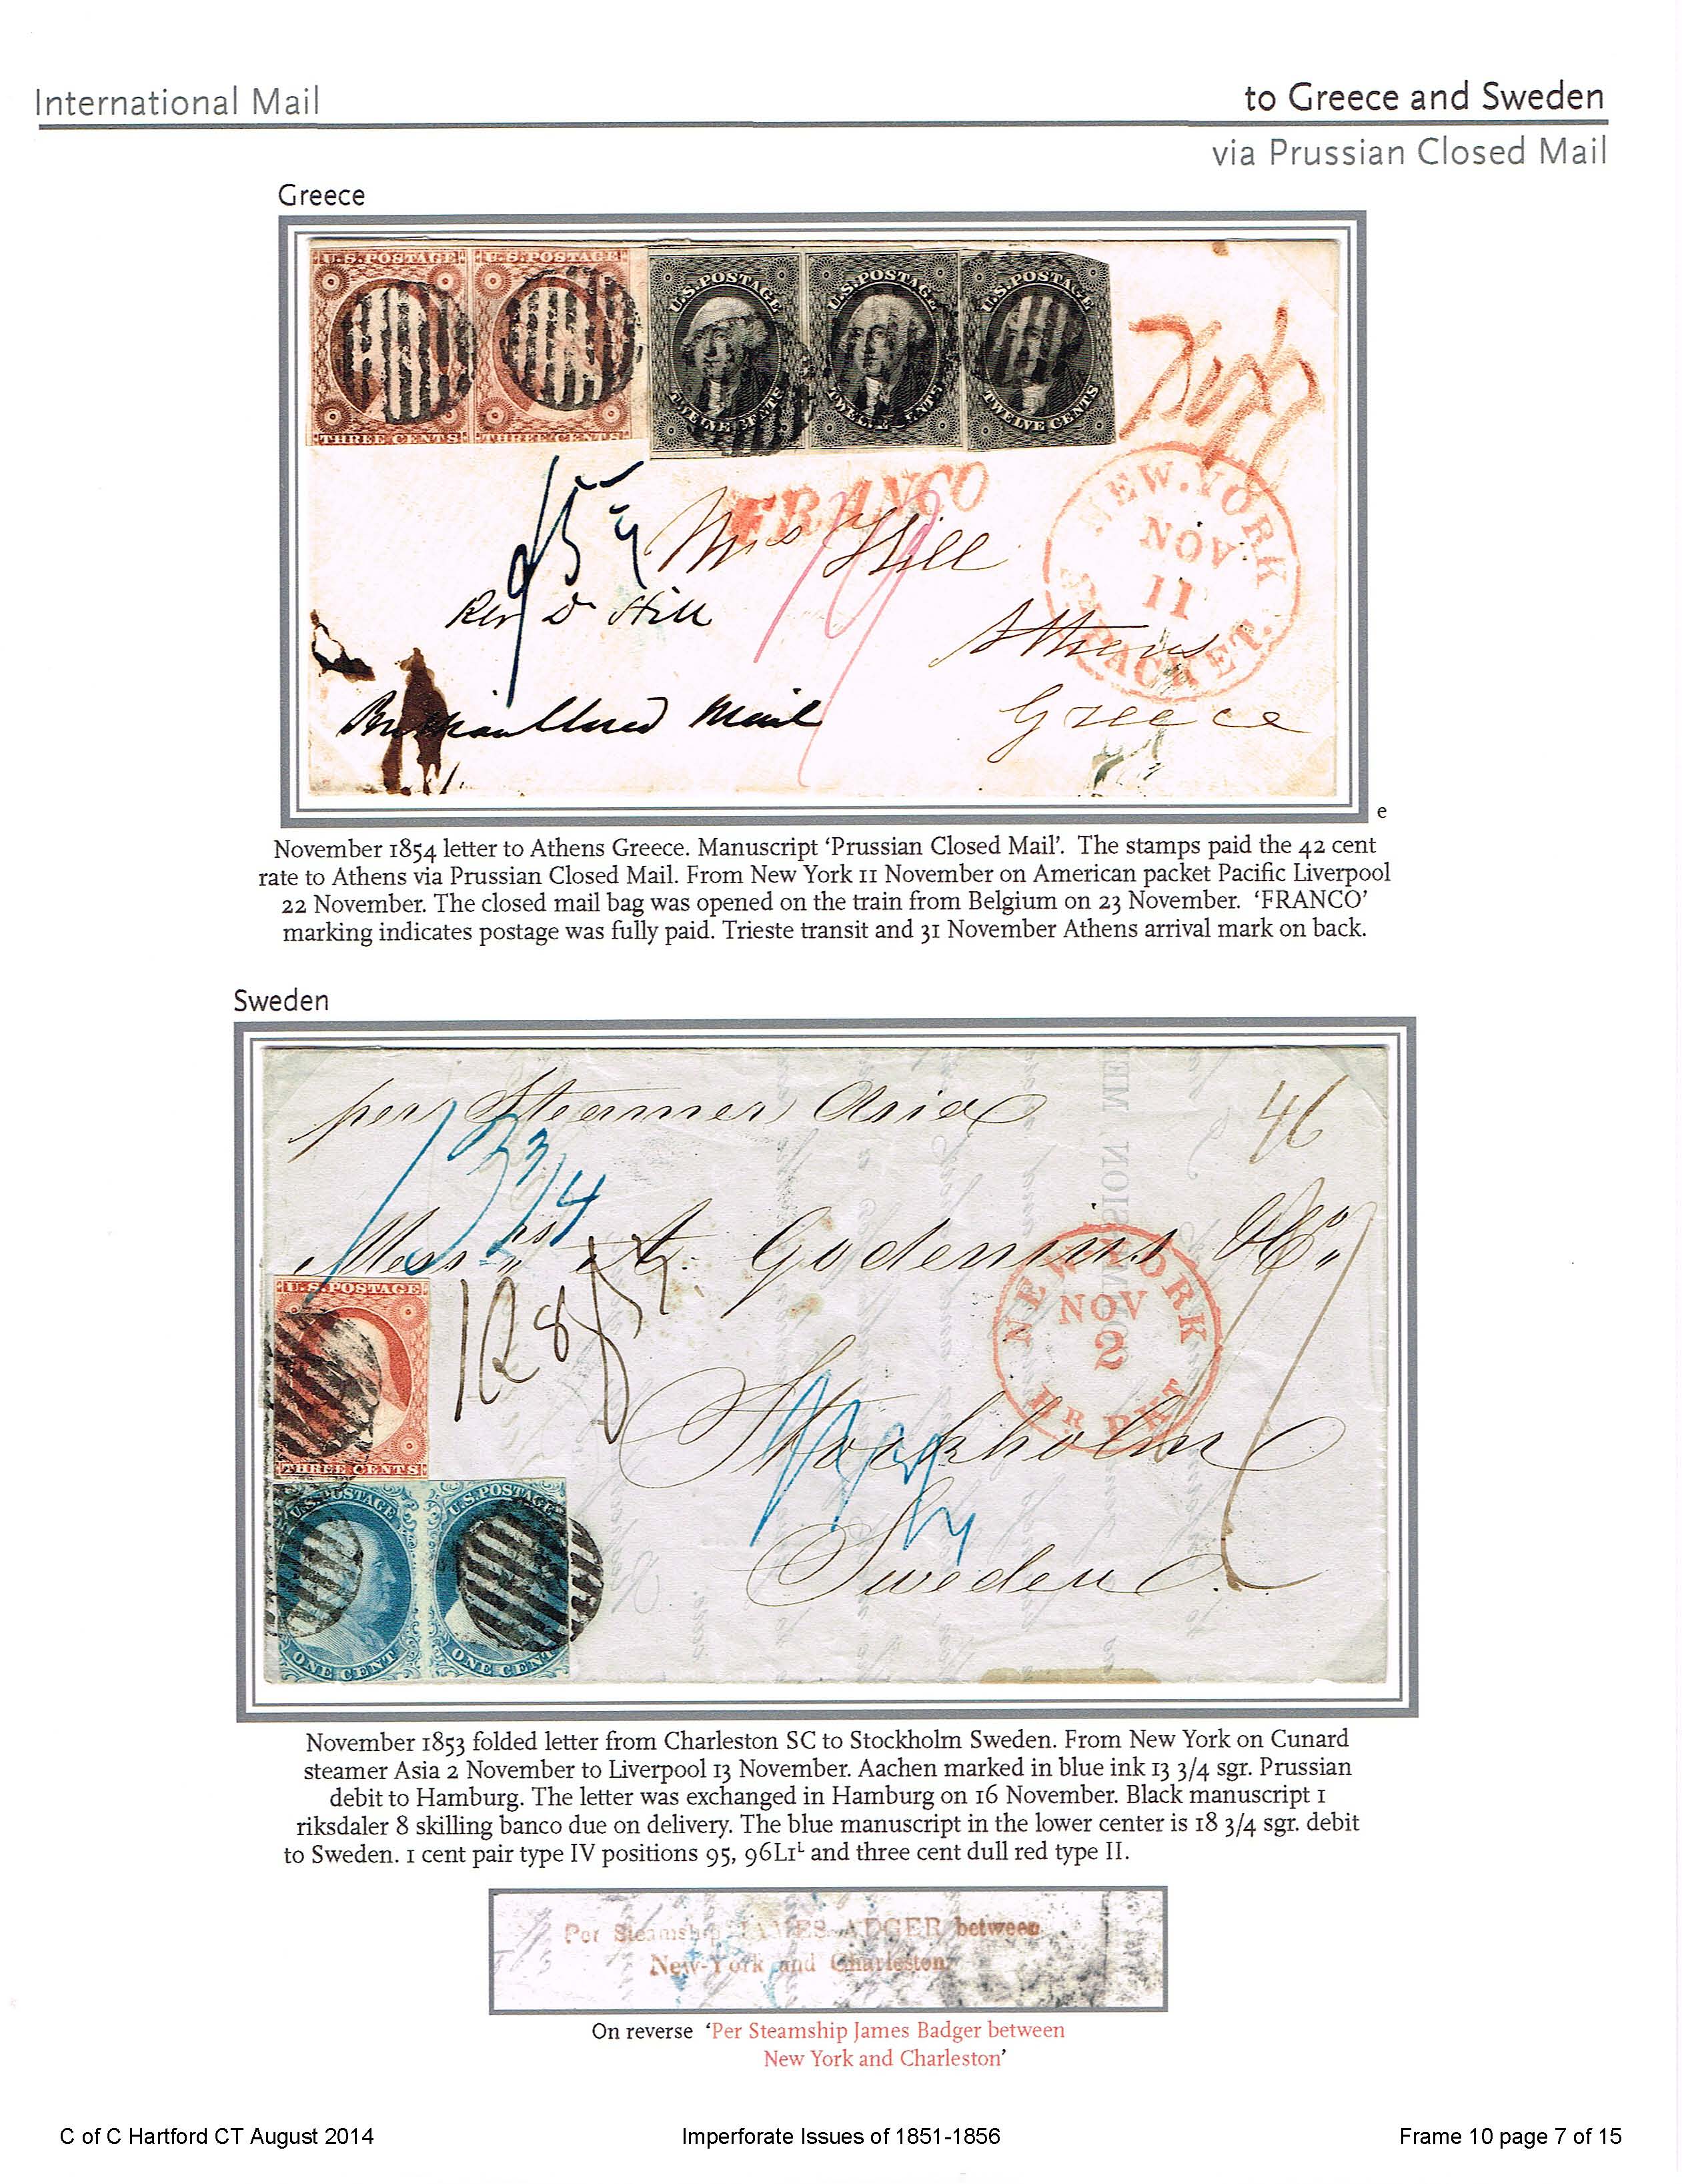 International Mail
to Greece and Sweden
via Prussian Closed Mail
Greece
U.S. POSTAGE U.S. POSTAGE U.S. POSTAGE U.S. POSTAGE U.S. POSTAGE
THREE CENTS THREE CENTS TWELVE CENTS TWELVE CENTS TWELVE CENTS
FRANCO
NEW.YORK
NOV
11
PACKET.
Mrs Hill
Rev D Hill
Athens
Mail
Greece
e
November 1854 letter to Athens Greece. Manuscript ‘Prussian Closed Mail’. The stamps paid the 42 cent
rate to Athens via Prussian Closed Mail. From New York 11 November on American packet Pacific Liverpool
22 November. The closed mail bag was opened on the train from Belgium on 23 November. ‘FRANCO’
marking indicates postage was fully paid. Trieste transit and 31 November Athens arrival mark on back.
Sweden
per Steamer Asia
46
13 3/4
Messrs A. Godenius & Co
U.S. POSTAGE
THREE CENTS
NEW YORK
NOV
2
BR PKT
Stockholm
Sweden
U.S. POSTAGE U.S. POSTAGE
ONE CENT ONE CENT
November 1853 folded letter from Charleston SC to Stockholm Sweden. From New York on Cunard
steamer Asia 2 November to Liverpool 13 November. Aachen marked in blue ink 13 3/4 sgr. Prussian
debit to Hamburg. The letter was exchanged in Hamburg on 16 November. Black manuscript 1
riksdaler 8 skilling banco due on delivery. The blue manuscript in the lower center is 18 3/4 sgr. debit
to Sweden. 1 cent pair type IV positions 95, 96L1ᴸ and three cent dull red type II.
Per Steamship JAMES ADGER between
New-York and Charleston.
On reverse ‘Per Steamship James Badger between
New York and Charleston’
C of C Hartford CT August 2014
Imperforate Issues of 1851-1856
Frame 10 page 7 of 15